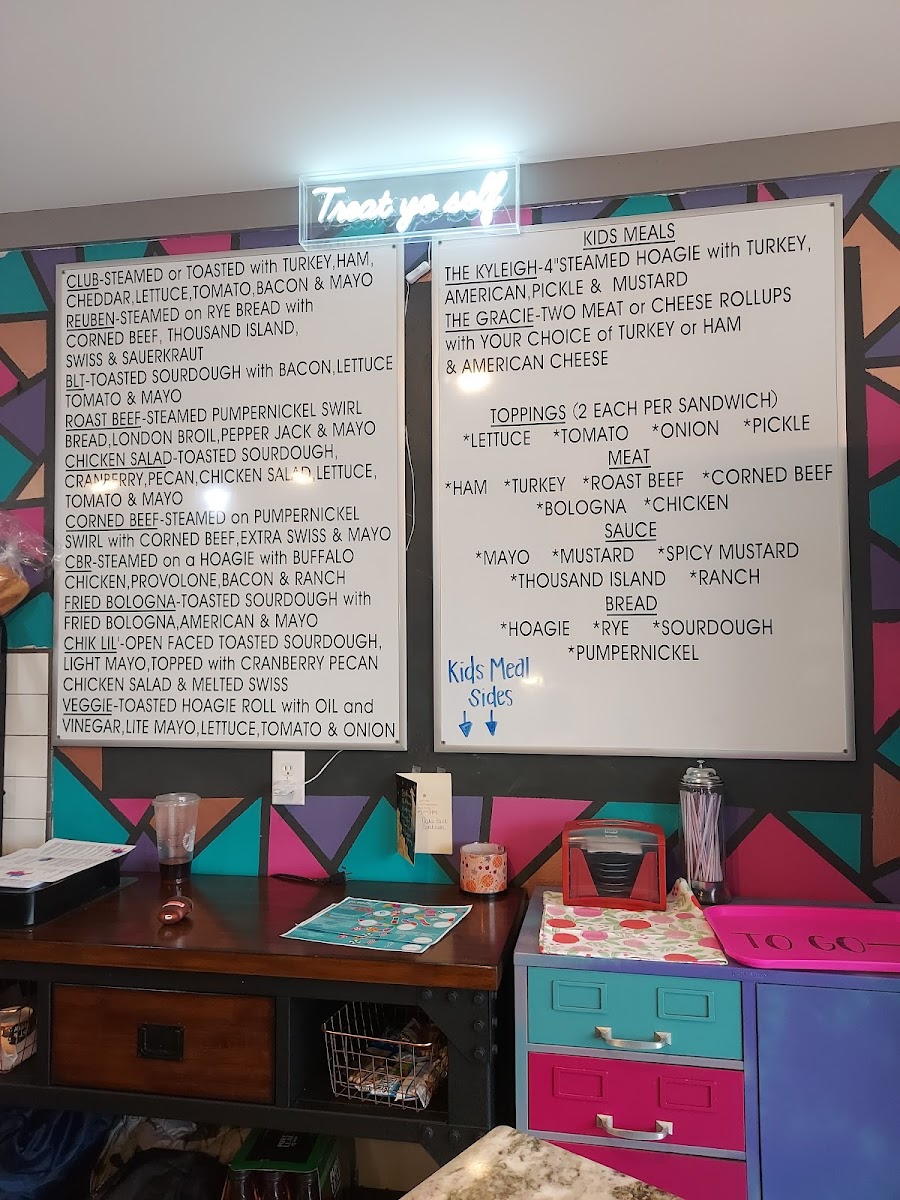 Treat yo self
CLUB-STEAMED or TOASTED with TURKEY,HAM,
CHEDDAR,LETTUCE,TOMATO,BACON & MAYO
REUBEN-STEAMED on RYE BREAD with
CORNED BEEF, THOUSAND ISLAND,
SWISS & SAUERKRAUT
BLT-TOASTED SOURDOUGH with BACON,LETTUCE
TOMATO & MAYO
ROAST BEEF-STEAMED PUMPERNICKEL SWIRL
BREAD,LONDON BROIL,PEPPER JACK & MAYO
CHICKEN SALAD-TOASTED SOURDOUGH,
CRANBERRY,PECAN,CHICKEN SALAD,LETTUCE,
TOMATO & MAYO
CORNED BEEF-STEAMED on PUMPERNICKEL
SWIRL with CORNED BEEF,EXTRA SWISS & MAYO
CBR-STEAMED on a HOAGIE with BUFFALO
CHICKEN,PROVOLONE,BACON & RANCH
FRIED BOLOGNA-TOASTED SOURDOUGH with
FRIED BOLOGNA,AMERICAN & MAYO
CHIK LIL'-OPEN FACED TOASTED SOURDOUGH,
LIGHT MAYO,TOPPED with CRANBERRY PECAN
CHICKEN SALAD & MELTED SWISS
VEGGIE-TOASTED HOAGIE ROLL with OIL and
VINEGAR,LITE MAYO,LETTUCE,TOMATO & ONION
KIDS MEALS
THE KYLEIGH-4"STEAMED HOAGIE with TURKEY,
AMERICAN,PICKLE & MUSTARD
THE GRACIE-TWO MEAT or CHEESE ROLLUPS
with YOUR CHOICE of TURKEY or HAM
& AMERICAN CHEESE
TOPPINGS (2 EACH PER SANDWICH)
*LETTUCE *TOMATO *ONION *PICKLE
MEAT
*HAM *TURKEY *ROAST BEEF *CORNED BEEF
*BOLOGNA *CHICKEN
SAUCE
*MAYO *MUSTARD *SPICY MUSTARD
*THOUSAND ISLAND *RANCH
BREAD
*HOAGIE *RYE *SOURDOUGH
*PUMPERNICKEL
Kids Meal
Sides
TO GO